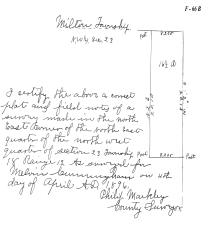 F-66B
Milton Township
N.W.¼ Sec. 23
16½ A
Post
I certify the above a correct
plat and field notes of a
survey made in the north
East corner of the North East
quarter of the north west
quarter of section 23 Township
18 Range 12 as surveyed for
Melvin Cunningham on 4th
day of April A.D. 1896
Philip Markley
County Surveyor
Post
Post